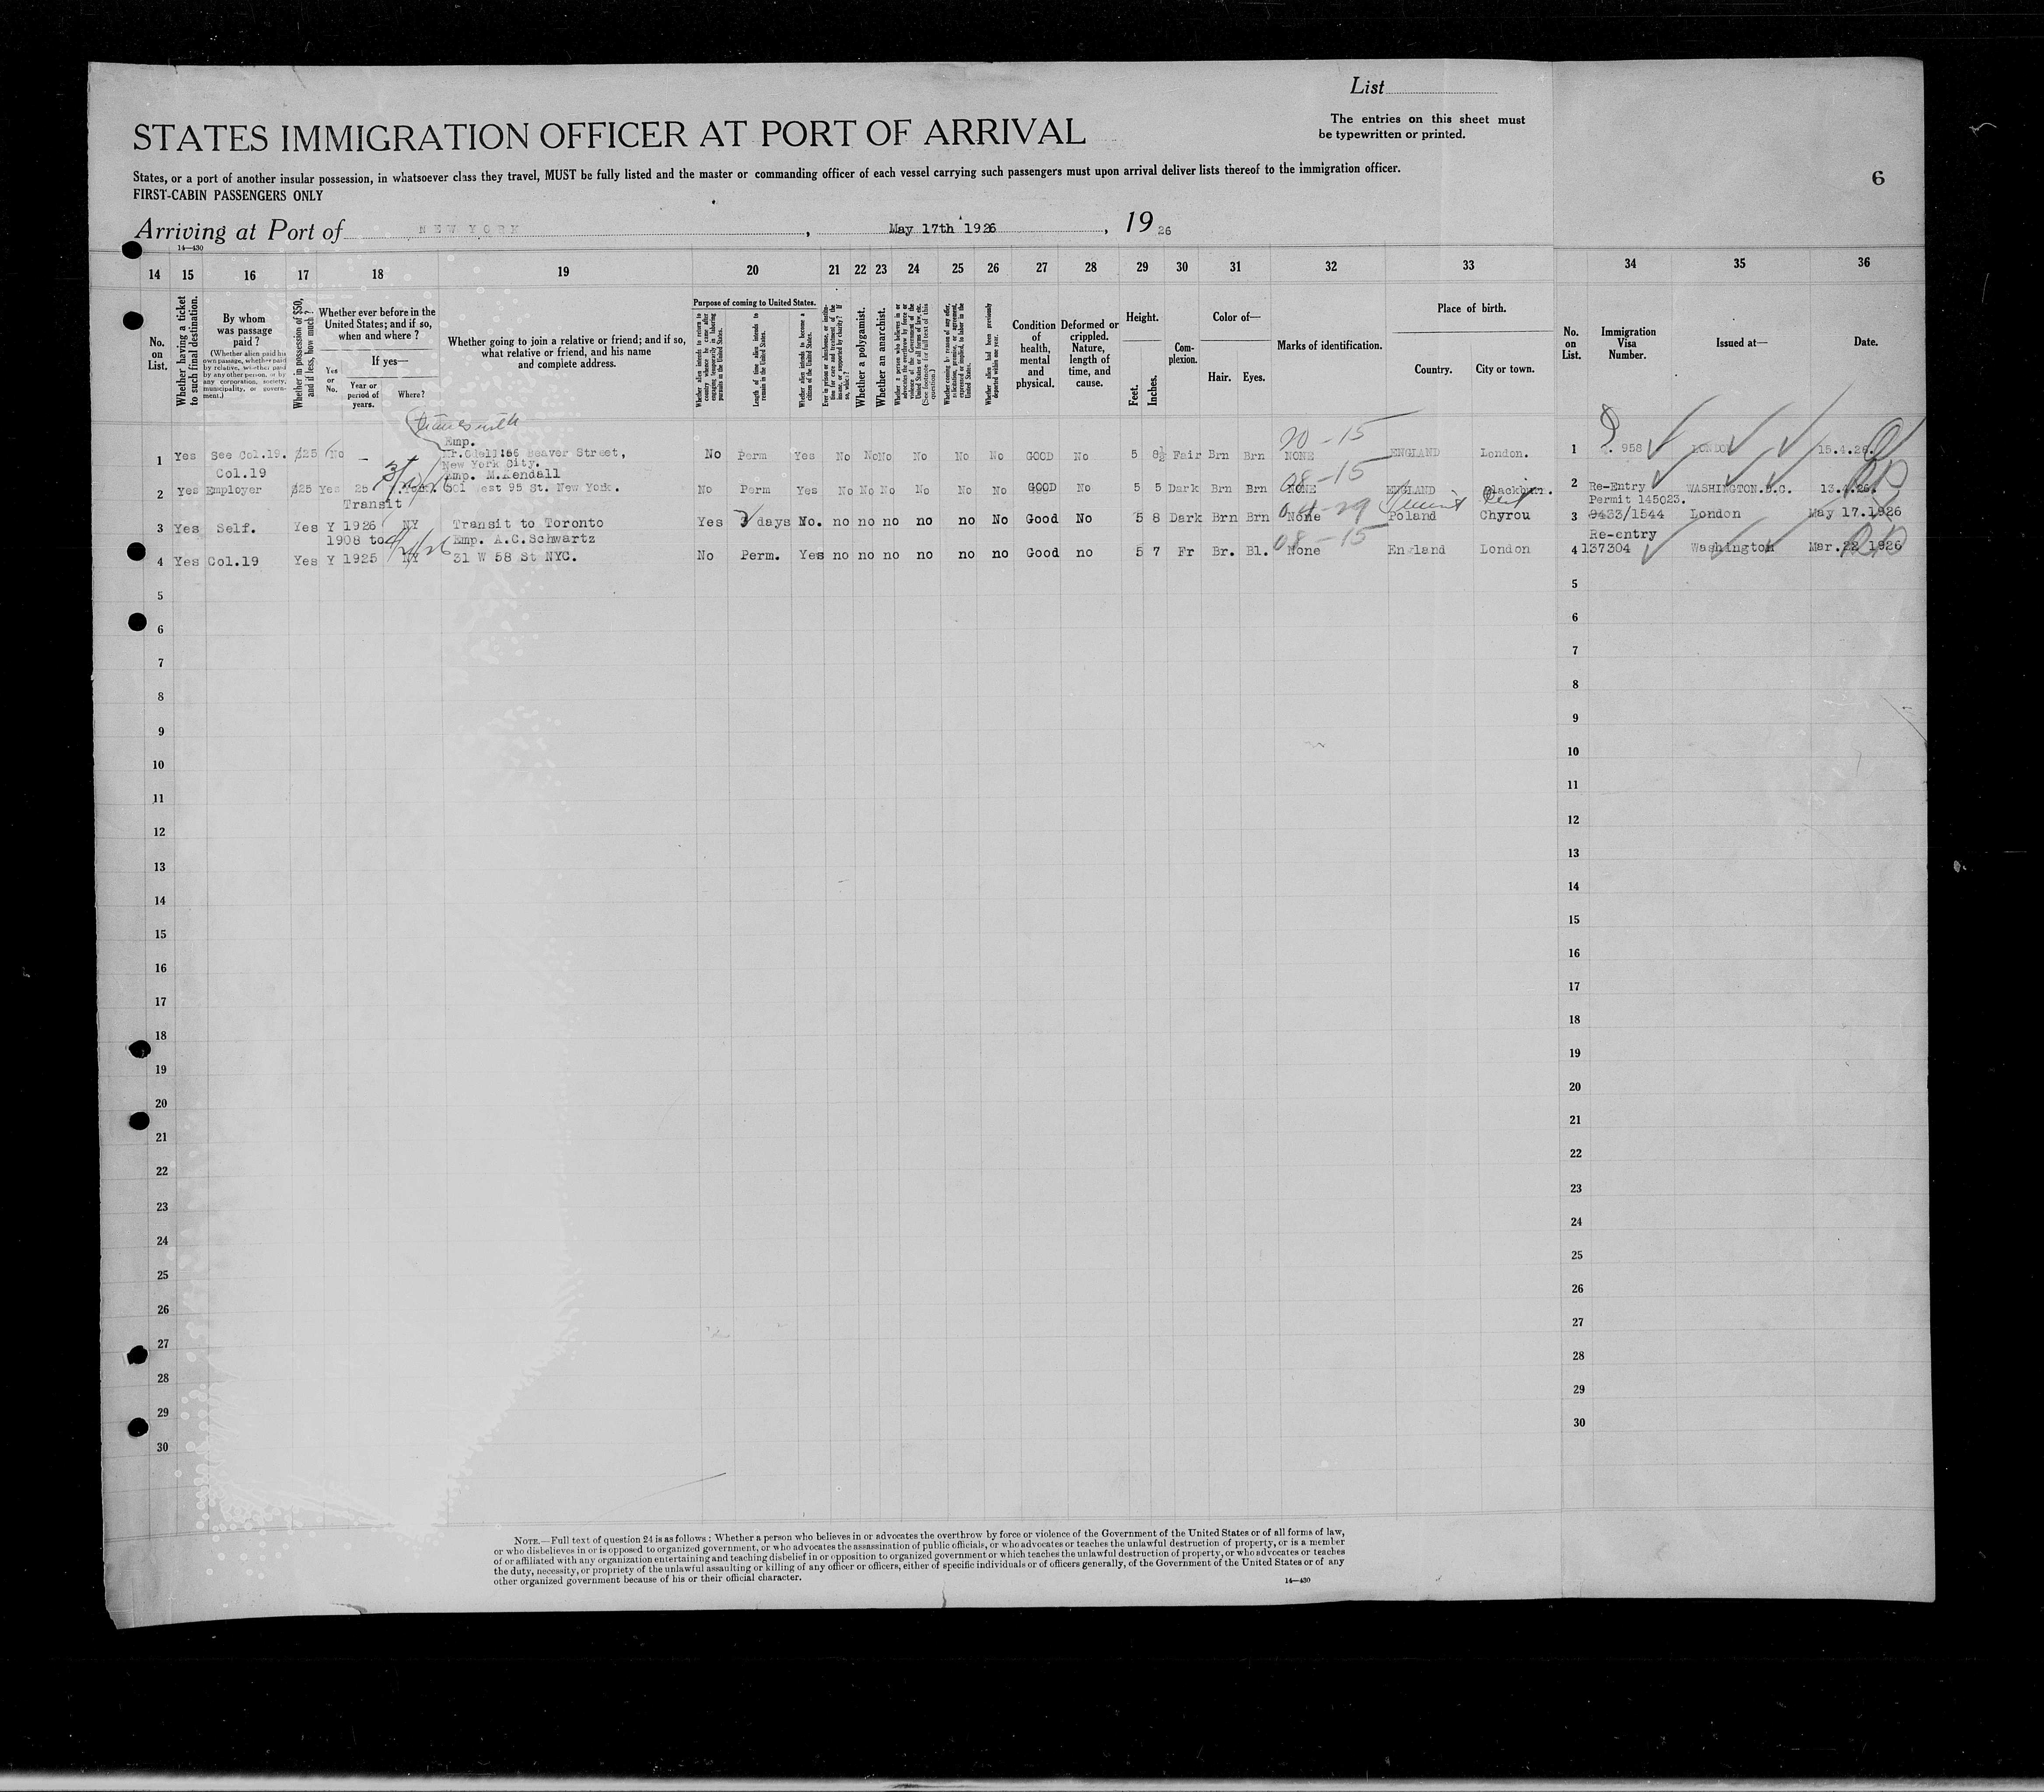 List
STATES IMMIGRATION OFFICER AT PORT OF ARRIVAL
The entries on this sheet must
be typewritten or printed.
States, or a port of another insular possession, in whatsoever class they travel, MUST be fully listed and the master or commanding officer of each vessel carrying such passengers must upon arrival deliver lists thereof to the immigration officer.
FIRST-CABIN PASSENGERS ONLY
6
Arriving at Port of NEW YORK, May 17th 1926, 19 26
14—430
14 15 16 17 18 19 20 21 22 23 24 25 26 27 28 29 30 31 32 33 34 35 36
No. on List.
Whether having a ticket to such final destination.
By whom was passage paid?
(Whether alien paid his own passage, whether paid by relative, whether paid by any other person, or by any corporation, society, municipality, or government.)
Whether in possession of $50, and if less, how much?
Whether ever before in the United States; and if so, when and where?
Yes or No.
If yes—
Year or period of years.
Where?
Whether going to join a relative or friend; and if so, what relative or friend, and his name and complete address.
Purpose of coming to United States.
Whether alien intends to return to country whence he came after engaging temporarily in laboring pursuits in the United States.
Length of time alien intends to remain in the United States.
Whether alien intends to become a citizen of the United States.
Ever in prison or almshouse, or institution for care and treatment of the insane, or supported by charity? If so, which?
Whether a polygamist.
Whether an anarchist.
Whether a person who believes in or advocates the overthrow by force or violence of the Government of the United States or all forms of law, etc. (See footnote for full text of this question.)
Whether coming by reason of any offer, solicitation, promise, or agreement, expressed or implied, to labor in the United States.
Whether alien had been previously deported within one year.
Condition of health, mental and physical.
Deformed or crippled. Nature, length of time, and cause.
Height.
Feet. Inches.
Complexion.
Color of—
Hair. Eyes.
Marks of identification.
Place of birth.
Country. City or town.
No. on List.
Immigration Visa Number.
Issued at—
Date.
20-15
Emp.
1 Yes See Col.19. $25 No — Mr.Odell:66 Beaver Street, No Perm Yes No No No No No No GOOD No 5 8½ Fair Brn Brn NONE ENGLAND London. 1 958 LONDON 15.4.26.
New York City.
Col.19 Emp. M.Kendall 08-15
2 Yes Employer $25 Yes 25 N.York. 301 West 95 St. New York. No Perm Yes No No No No No No GOOD No 5 5 Dark Brn Brn NONE ENGLAND Blackburn. 2 Re-Entry WASHINGTON.D.C.
Permit 145023.
Transit
3 Yes Self. Yes Y 1926 NY Transit to Toronto Yes days No. no no no no no No Good No 5 8 Dark Brn Brn None Poland Chyrou 3 9433/1544 London May 17.1926
1908 to Emp. A.C.Schwartz 08-15 Re-entry
4 Yes Col.19 Yes Y 1925 NY 31 W 58 St NYC. No Perm. Yes no no no no no no Good no 5 7 Fr Br. Bl. None England London 4 137304 Washington Mar.22 1926
5 5
6 6
7 7
8 8
9 9
10 10
11 11
12 12
13 13
14 14
15 15
16 16
17 17
18 18
19 19
20 20
21 21
22 22
23 23
24 24
25 25
26 26
27 27
28 28
29 29
30 30
NOTE.—Full text of question 24 is as follows: Whether a person who believes in or advocates the overthrow by force or violence of the Government of the United States or of all forms of law,
or who disbelieves in or is opposed to organized government, or who advocates the assassination of public officials, or who advocates or teaches the unlawful destruction of property, or is a member
of or affiliated with any organization entertaining and teaching disbelief in or opposition to organized government or which teaches the unlawful destruction of property, or who advocates or teaches
the duty, necessity, or propriety of the unlawful assaulting or killing of any officer or officers, either of specific individuals or of officers generally, of the Government of the United States or of any
other organized government because of his or their official character.
14—430